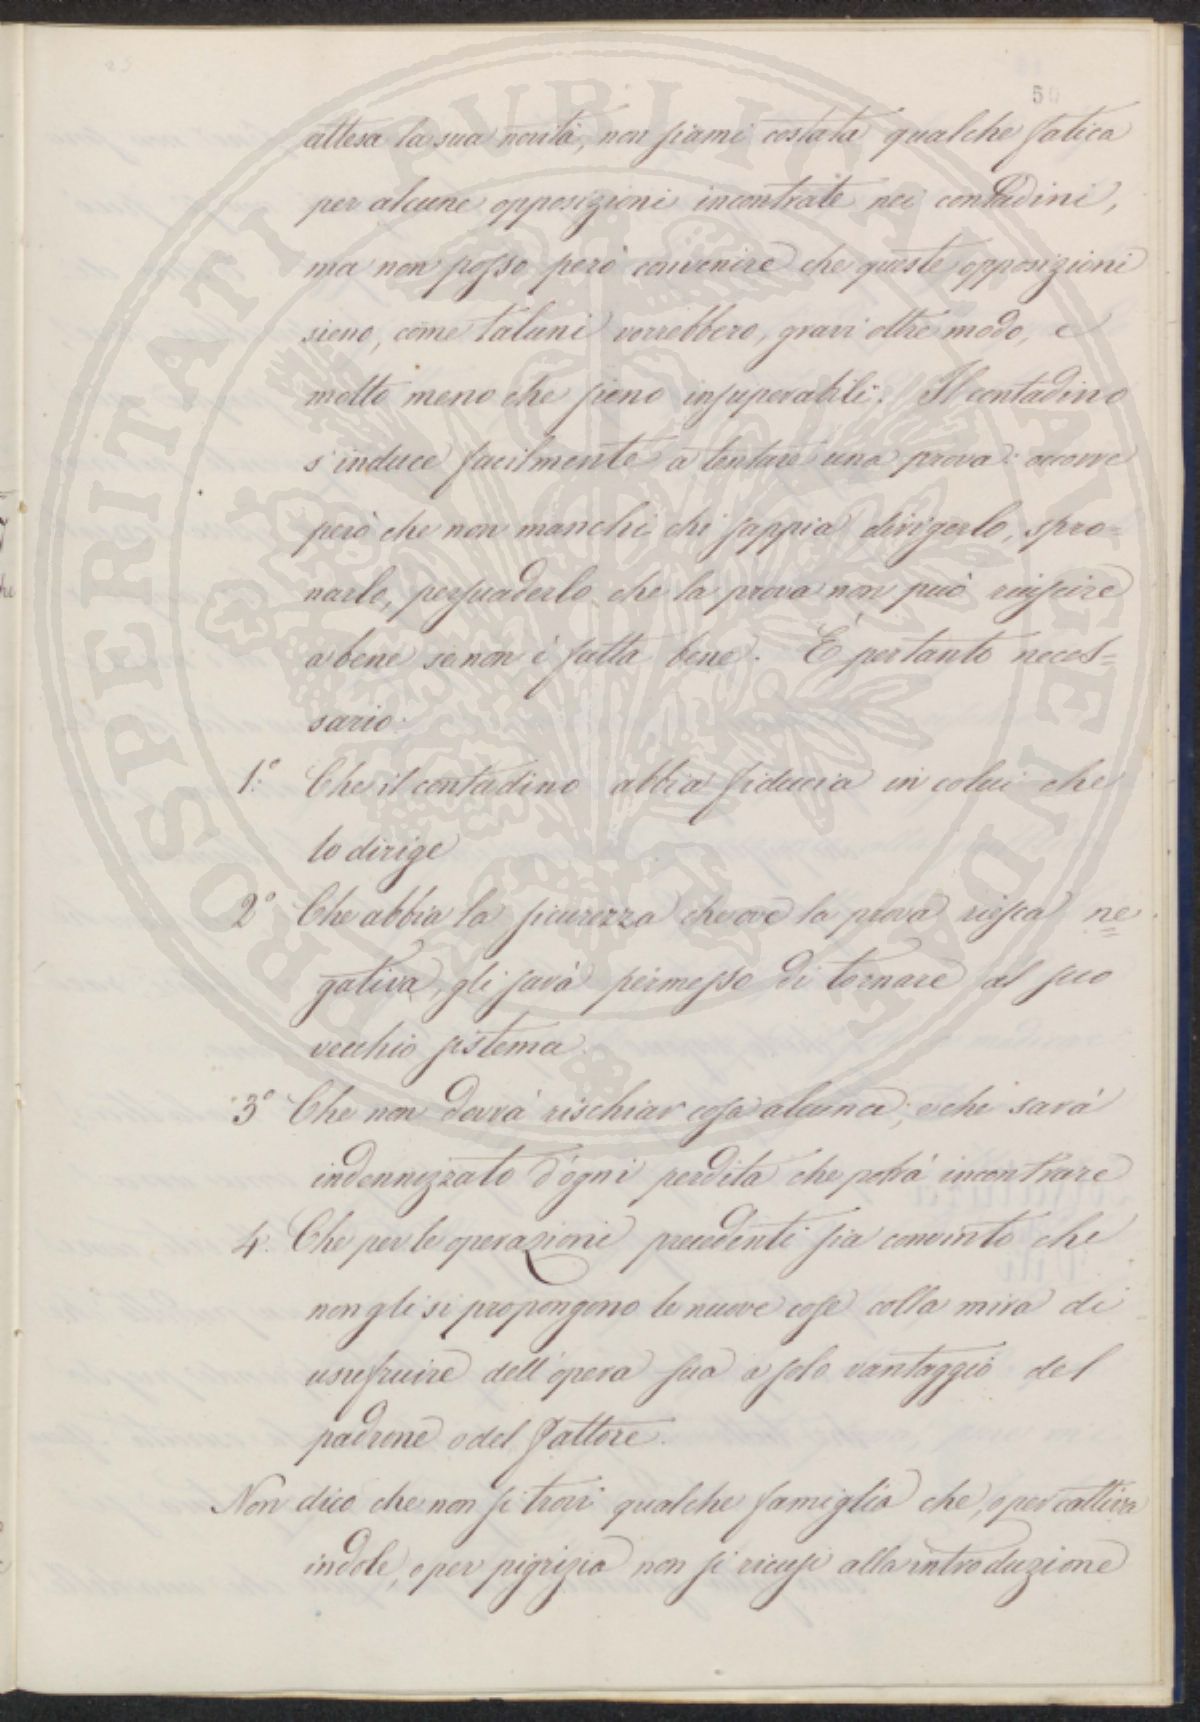 50
attesa la sua novità, non siami costata qualche fatica
per alcune opposizioni incontrate nei contadini,
ma non posso però convenire che queste opposizioni
sieno, come taluni vorrebbero, gravi oltre modo, e
molto meno che sieno insuperabili. Il contadino
s'induce facilmente a tentare una prova: occorre
però che non manchi chi sappia dirigerlo, spro=
narlo, persuaderlo che la prova non può riuscire
a bene se non è fatta bene. È pertanto neces=
sario:
1.° Che il contadino abbia fiducia in colui che
lo dirige
2° Che abbia la sicurezza che ove la prova riesca ne=
gativa, gli sarà permesso di tornare al suo
vecchio sistema.
3° Che non dovrà rischiar cosa alcuna; e che sarà
indennizzato d'ogni perdita che potrà incontrare
4.° Che per le operazioni precedenti sia convinto che
non gli si propongono le nuove cose colla mira di
usufruire dell'opera sua a solo vantaggio del
padrone o del fattore.
Non dico che non si trovi qualche famiglia che, o per cattiva
indole, o per pigrizia non si ricusi alla introduzione
PROSPERITATI PUBLICAE AUGENDAE